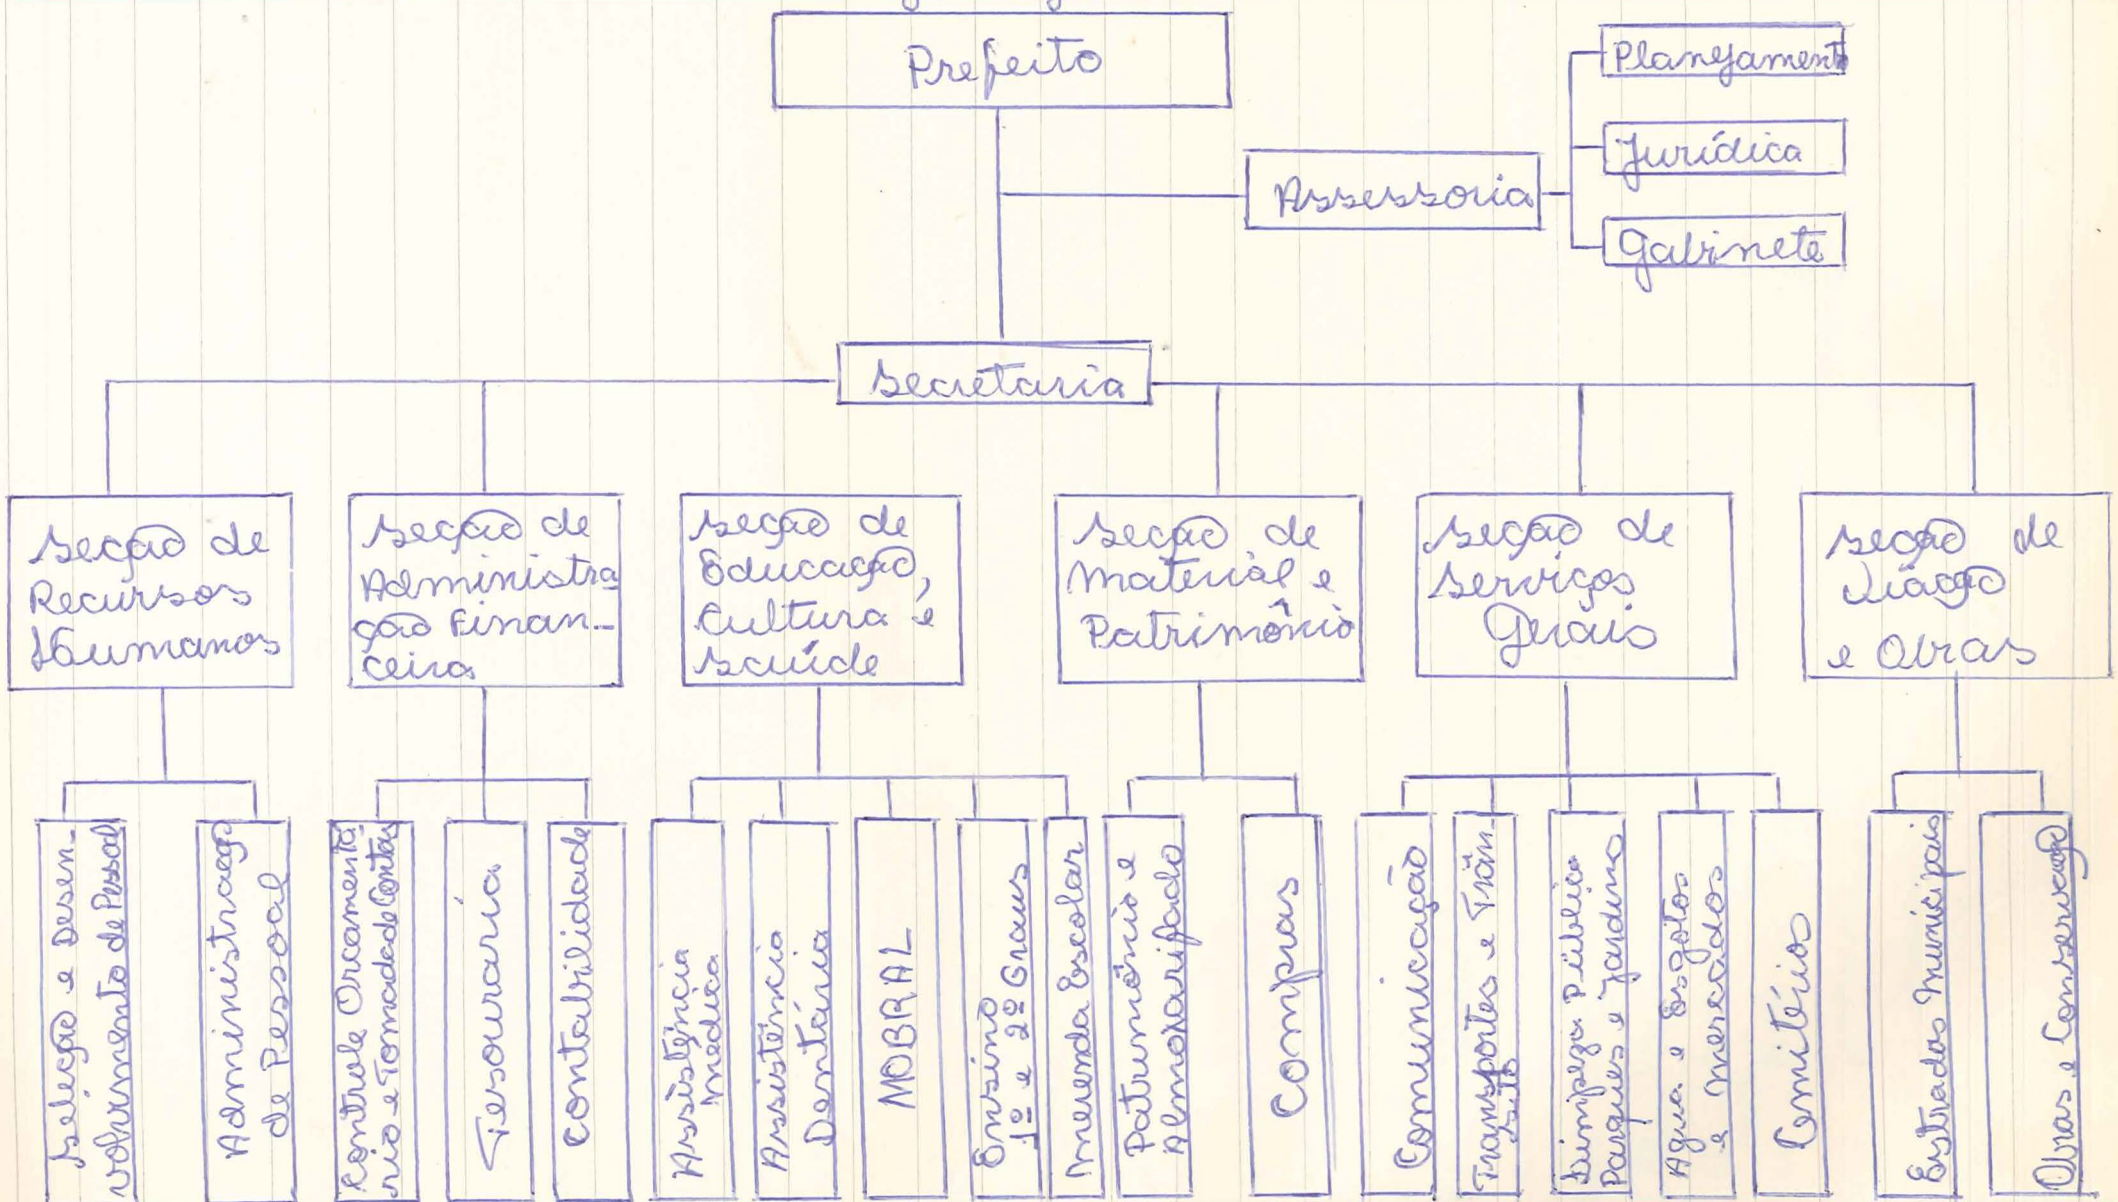 Prefeito
Planejamento
Jurídica
Assessoria
Gabinete
Secretaria
Secção de
Recursos
Humanos
Secção de
Administra
ção Finan-
ceira
Secção de
Educação,
Cultura e
Saúde
Secção de
Material e
Patrimônio
Secção de
Serviços
Gerais
Secção de
Viação
e Obras
Seleção e Desen-
volvimento de Pessoal
Administração
de Pessoal
Controle Orcamentá
rio e Tomada de Contas
Tesouraria
Contabilidade
Assistência
Médica
Assistência
Dentária
MOBRAL
Ensino
1º e 2º Graus
Merenda Escolar
Patrimônio e
Almoxarifado
Compras
Comunicação
Transportes e Trân-
sito
Limpeza Pública
Parques e Jardins
Agua e Esgôtos
e Mercados
Cemitérios
Estradas Municipais
Obras e Conservação